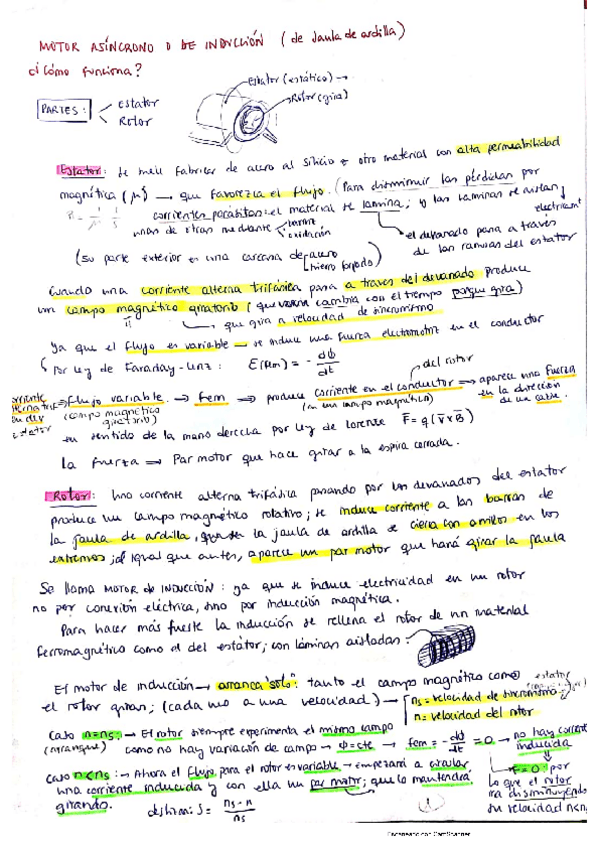 MOTOR ASÍNCRONO O DE INDUCCIÓN (de Jaula de ardilla)
¿Cómo funciona?
PARTES: Estator
Rotor
Estator (estático)
Rotor (gira)
Estator: Se suele fabricar de acero al silicio u otro material con alta permeabilidad
magnética (μ) → que favorezca el flujo. (Para disminuir las pérdidas por
corrientes parásitas: el material se lamina; y las láminas se aislan
unas de otras mediante barniz
oxidación
el devanado pasa a través
de las ranuras del estator
(su parte exterior es una carcasa de acero
hierro forjado)
Cuando una corriente alterna trifásica pasa a través del devanado produce
un campo magnético giratorio (que cambia con el tiempo porque gira)
que gira a velocidad de sincronismo
Ya que el flujo es variable → se induce una fuerza electromotriz en el conductor
Por ley de Faraday-Lenz: E(fem) = - dΦ/dt
del rotor
corriente alterna trif. en dev estator ⇒ flujo variable → fem ⇒ produce corriente en el conductor ⇒ aparece una fuerza
(campo magnético giratorio)
(en un campo magnético)
en la dirección
en sentido de la mano derecha por ley de lorentz F = q(v x B)
la fuerza ⇒ Par motor que hace girar a la espira cerrada.
Rotor: Una corriente alterna trifásica pasando por los devanados del estator
produce un campo magnético rotativo; se induce corriente a las barras de
la jaula de ardilla, la jaula de ardilla se cierra con anillos en los
extremos; al igual que antes, aparece un par motor que hará girar la jaula
Se llama MOTOR de INDUCCIÓN: ya que se induce electricidad en un rotor
no por conexión eléctrica, sino por inducción magnética.
Para hacer más fuerte la inducción se rellena el rotor de un material
ferromagnético como el del estator; con láminas aisladas.
El motor de inducción → arranca "solo": tanto el campo magnético como
estator
el rotor giran; (cada uno a una velocidad) → ns = velocidad de sincronismo
n = velocidad del rotor
Caso n=ns: → El rotor siempre experimenta el mismo campo
(arranque) como no hay variación de campo → Φ=cte → fem = -dΦ/dt = 0 → no hay corriente
inducida
F=0: por
lo que el rotor
irá disminuyendo
su velocidad n<ns
Caso n<ns: → Ahora el flujo para el rotor es variable → empezará a circular
una corriente inducida y con ella un par motor; que lo mantendrá
girando.
desliz: S = ns - n / ns
Escaneado con CamScanner